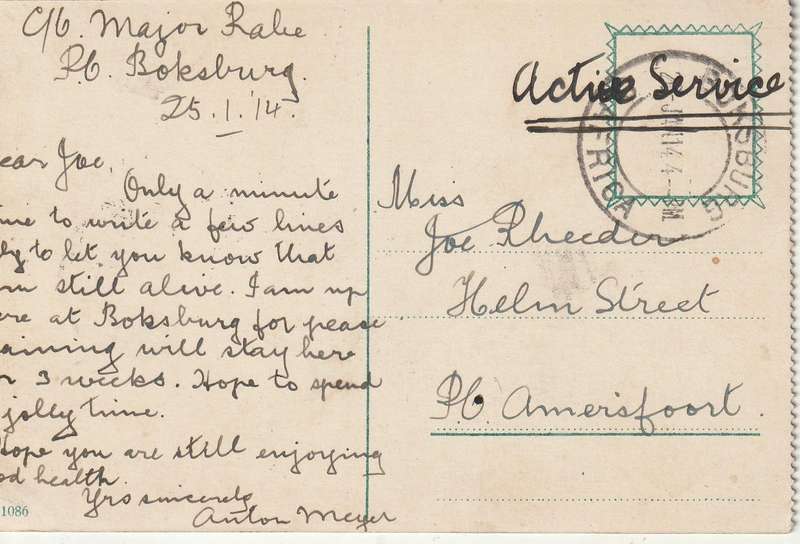 C/o. Major Rabe
P.O. Boksburg.
25.1.14.
ear Joe,
Only a minute
me to write a few lines
ly to let you know that
m still alive. I am up
ere at Boksburg for peace
aining will stay here
r 3 weeks. Hope to spend
jolly time.
ope you are still enjoying
od health.
Yrs sincerely
Anton Meyer
1086
Active Service
BOKSBURG
AFRICA
JAN 14 4 - PM
Miss
Joe Rheeder
Helm Street
P.O. Amersfoort.